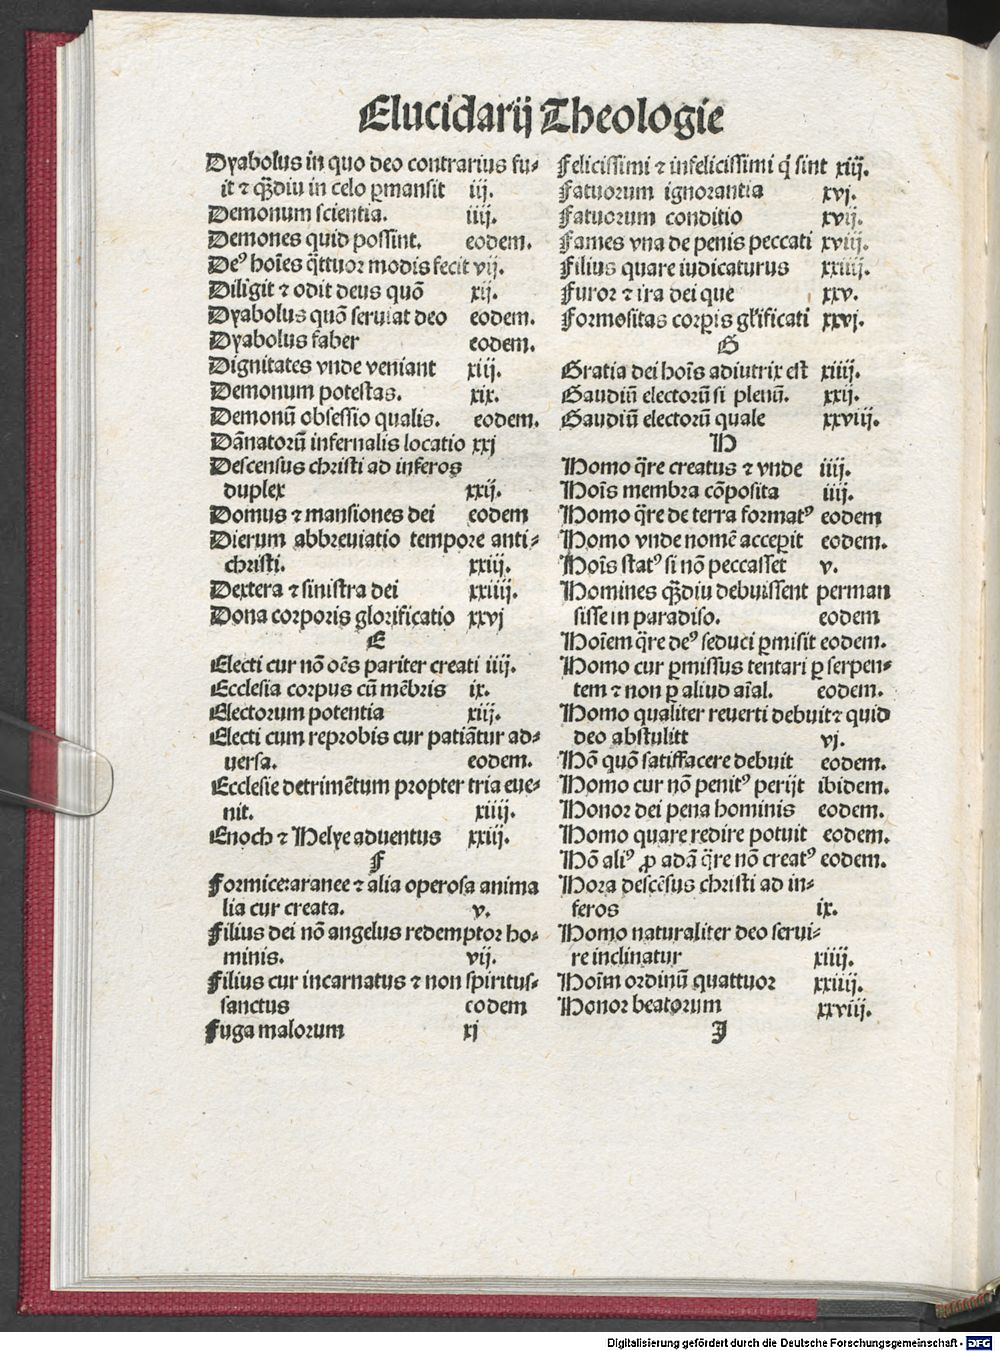 Elucidarij Theologie
Dyabolus in quo deo contrarius fu-
it ⁊ qꝫdiu in celo ꝑmansit iij.
Demonum scientia. iiij.
Demones quid possint. eodem.
Deꝰ hoīes q̄ttuor modis fecit vij.
Diligit ⁊ odit deus quō xij.
Dyabolus quō seruiat deo eodem.
Dyabolus faber eodem.
Dignitates vnde veniant xiij.
Demonum potestas. xix.
Demonū obsessio qualis. eodem.
Dānatorū infernalis locatio xxj
Descensus christi ad inferos
duplex xxij.
Domus ⁊ mansiones dei eodem
Dierum abbreuiatio tempore anti-
christi. xxiij.
Dextera ⁊ sinistra dei xxiiij.
Dona corporis glorificatio xxvj
E
Electi cur nō oēs pariter creati iiij.
Ecclesia corpus cū mēbris ix.
Electorum potentia xiij.
Electi cum reprobis cur patiātur ad-
uersa. eodem.
Ecclesie detrimētum propter tria eue-
nit. xiiij.
Enoch ⁊ Helye aduentus xxiij.
F
Formice:aranee ⁊ alia operosa anima
lia cur creata. v.
Filius dei nō angelus redemptor ho-
minis. vij.
Filius cur incarnatus ⁊ non spiritus-
sanctus eodem
Fuga malorum xj
Felicissimi ⁊ infelicissimi q̇ sint xiij.
Fatuorum ignorantia xvj.
Fatuorum conditio xvij.
Fames vna de penis peccati xviij.
Filius quare iudicaturus xxiiij.
Furor ⁊ ira dei que xxv.
Formositas corꝑis gl'ificati xxvj.
G
Gratia dei hoīs adiutrix est xiiij.
Gaudiū electorū si plenū. xxij.
Gaudiū electorū quale xxviij.
H
Homo q̄re creatus ⁊ vnde iiij.
Hoīs membra cōposita iiij.
Homo q̄re de terra formatꝰ eodem
Homo vnde nomē acceꝑit eodem.
Hoīs statꝰ si nō peccasset v.
Homines qꝫdiu debuissent perman
sisse in paradiso. eodem
Hoīem q̄re deꝰ seduci ꝑmisit eodem.
Homo cur ꝑmissus tentari ꝑ serpen-
tem ⁊ non ꝑ aliud aīal. eodem.
Homo qualiter reuerti debuit⁊ quid
deo abstulitt vj.
Hō quō satisfacere debuit eodem.
Homo cur nō penitꝰ perijt ibidem.
Honor dei pena hominis eodem.
Homo quare redire potuit eodem.
Hō aliꝰ ꝓ adā q̄re nō creatꝰ eodem.
Hora descēsus christi ad in-
feros ix.
Homo naturaliter deo serui-
re inclinatur xiiij.
Hoīm ordinū quattuor xxiiij.
Honor beatorum xxviij.
J
Digitalisierung gefördert durch die Deutsche Forschungsgemeinschaft - DFG